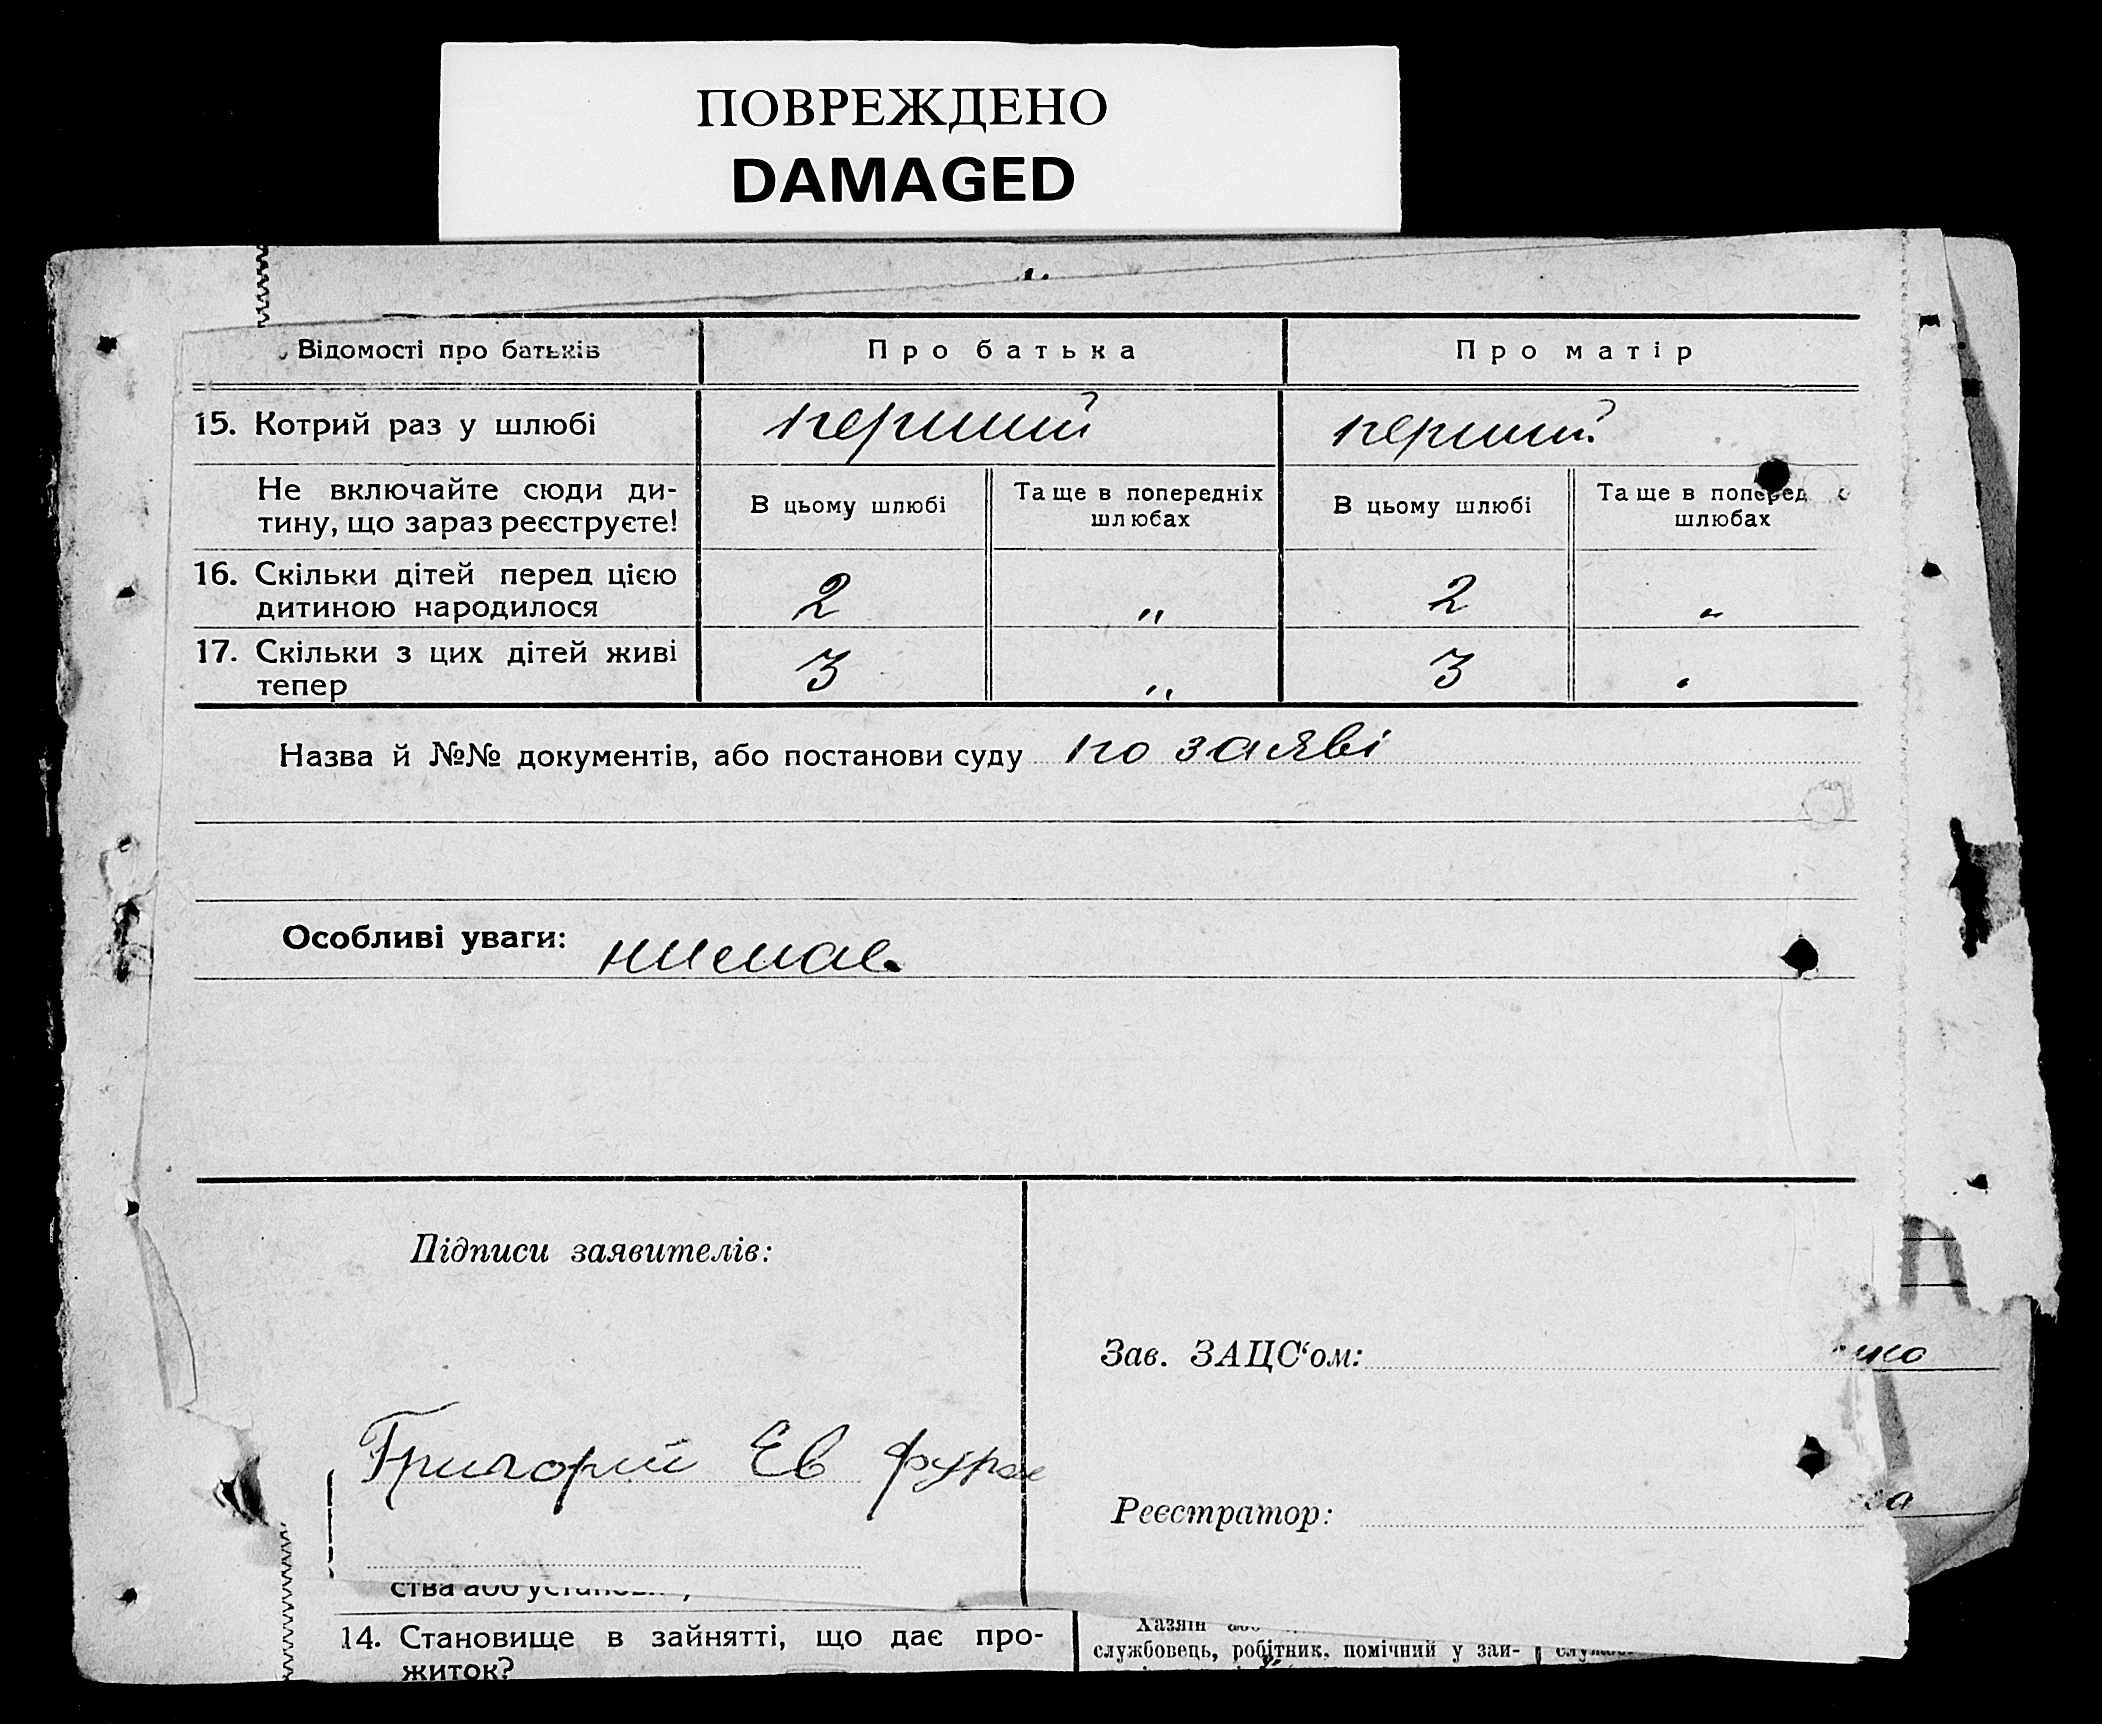 ПОВРЕЖДЕНО
DAMAGED
Відомості про батьків
Про батька
Про матір
15. Котрий раз у шлюбі
перший
перший
Не включайте сюди ди-
тину, що зараз реєструєте!
В цьому шлюбі
Та ще в попередніх
шлюбах
В цьому шлюбі
Та ще в поперед
шлюбах
16. Скільки дітей перед цією
дитиною народилося
2
"
2
"
17. Скільки з цих дітей живі
тепер
3
"
3
Назва й №№ документів, або постанови суду по заяві
Особливі уваги: нимає.
Підписи заявителів:
Зав. ЗАЦС‘ом:
Григорій Ев
Реєстратор:
ства або
14. Становище в зайнятті, що дає про-
житок?
Хазяїн
службовець, робітник, помічний у зай-